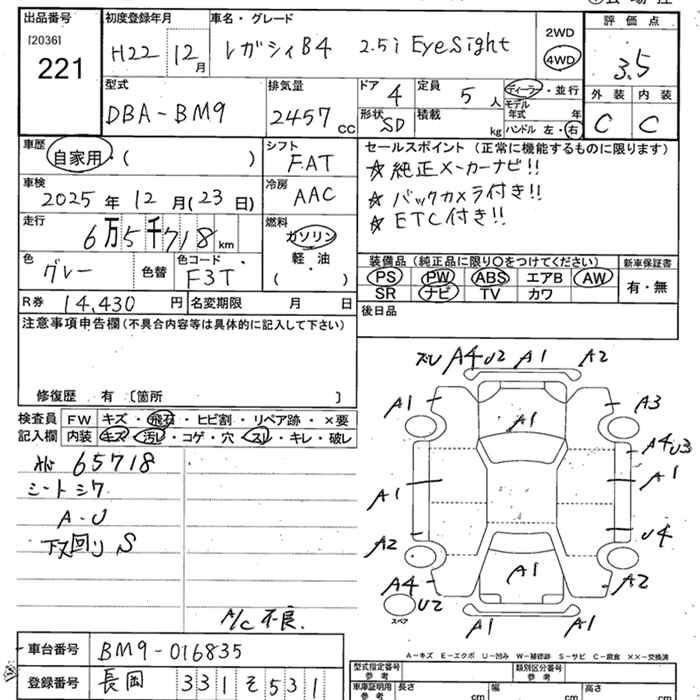 出品番号 初度登録年月 車名・グレード 評価点
[2036] H22 12月 レガシィB4 2.5i EyeSight 2WD 3.5
221 4WD
型式 排気量 ドア 4 定員 5人 ディーラー・並行 外装 内装
DBA-BM9 2457cc 形状 SD 積載 kg モデル年式 年 C C
ハンドル 左・右
車歴 自家用・( ) シフト FAT セールスポイント(正常に機能するものに限ります)
車検 2025年12月(23日) 冷房 AAC ☆純正メーカーナビ!!
☆バックカメラ付き!!
走行 6万5千718km 燃料 ガソリン ☆ETC付き!!
軽・油
( )
色 グレー 色替 色コード F3T 装備品(純正品に限り○をつけてください) 新車保証書
PS PW ABS エアB AW 有・無
R券 14,430円 名変期限 月 日 SR ナビ TV カワ
注意事項申告欄(不具合内容等は具体的に記入して下さい) 後日品
修復歴 有 〔箇所 〕
検査員 FW キズ・飛石・ヒビ割・リペア跡・×要
記入欄 内装 キズ・汚レ・コゲ・穴・スレ・キレ・破レ
65718
シートシワ
A-U
下回りS
A/C不良.
A4U2 A1 A2
A1 A1 A3
A4U3
A1 A1
A2 U4
A4 A1 A2
U2
スペア A1 A1
A-キズ E-エクボ U-凹み W-補修跡 S-サビ C-腐食 ××-交換済
車台番号 BM9-016835
登録番号 長岡 331 そ 531
型式指定番号 参考 類別区分番号 参考
車庫証明用 参考 長さ cm 幅 cm 高さ cm